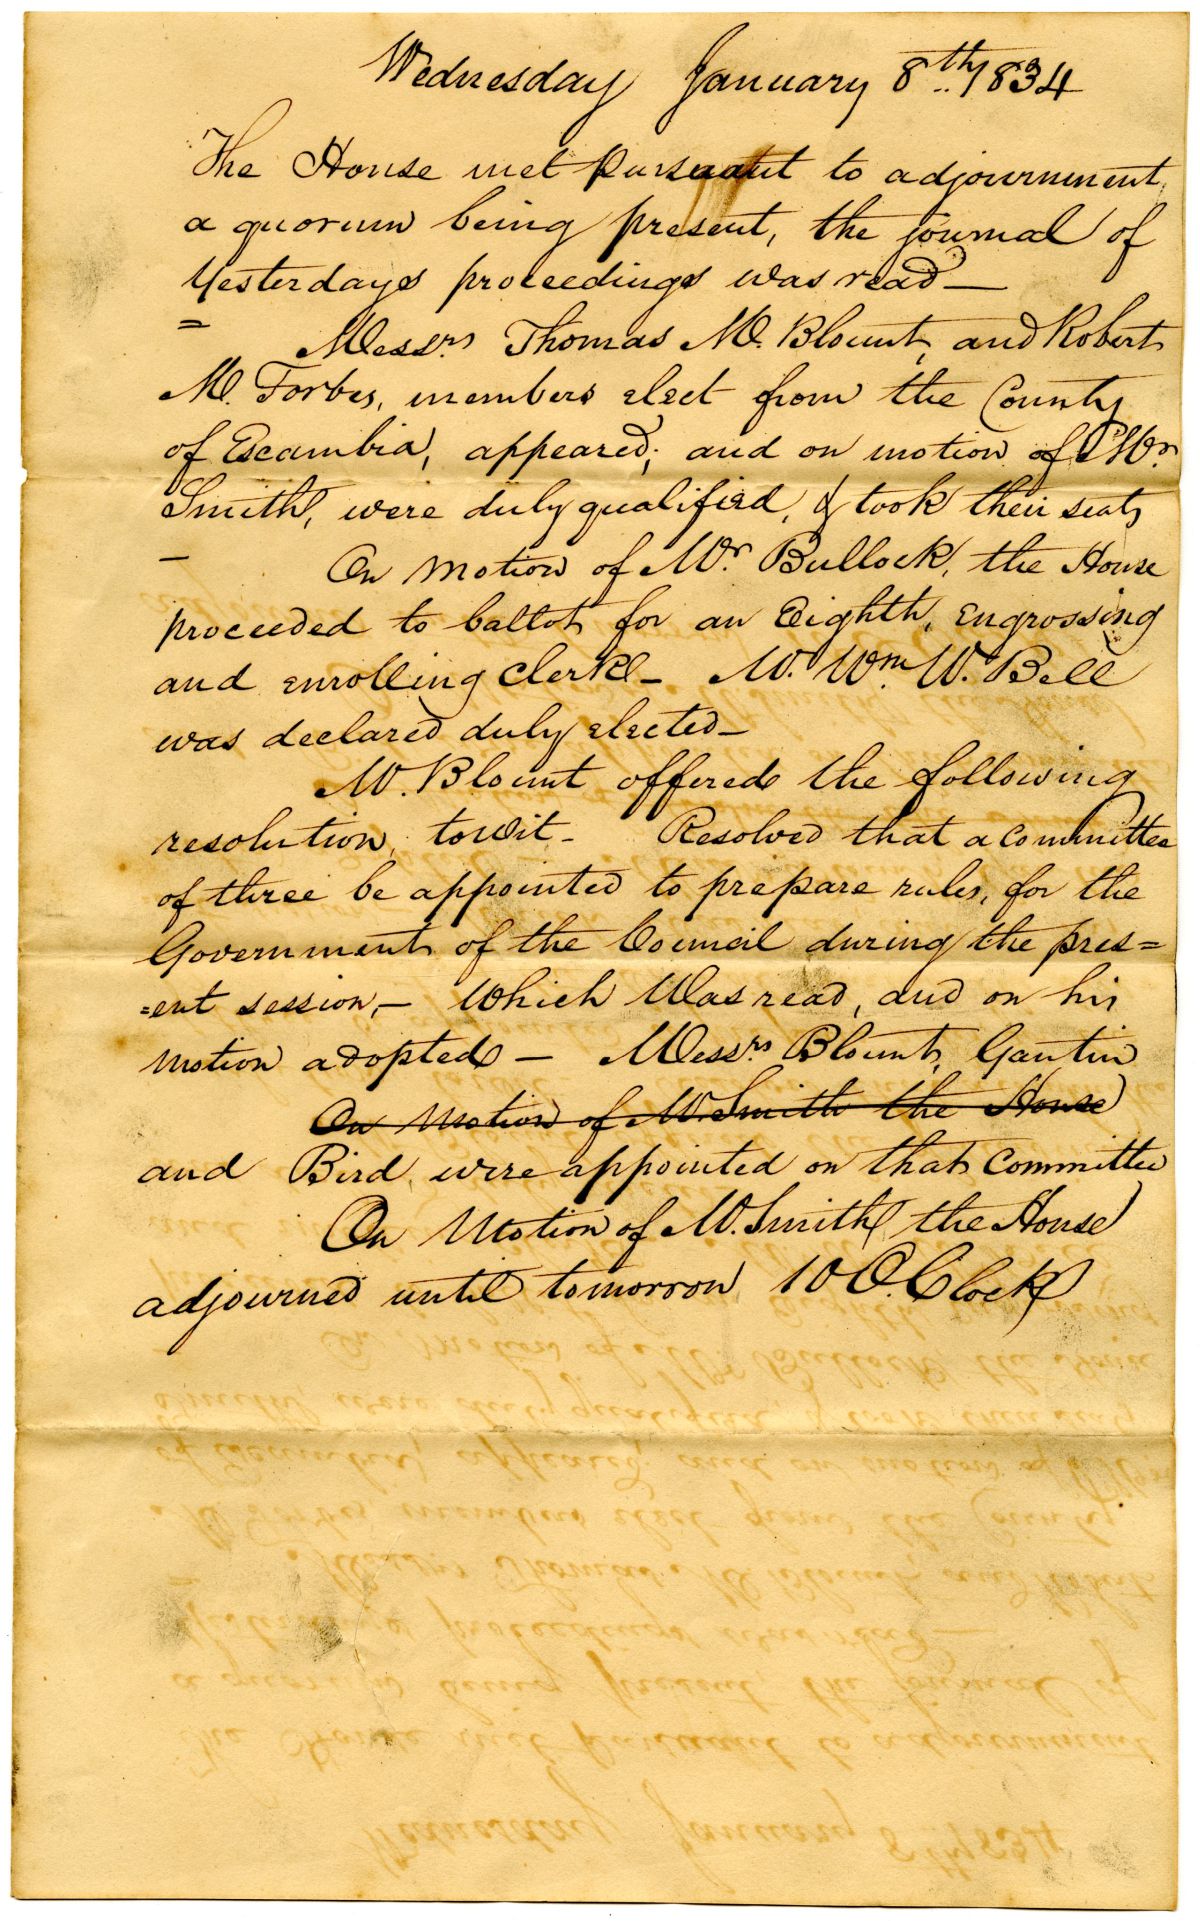 Wednesday January 8th. 1834
The House met pursuant to adjournment,
a quorum being present, the journal of
Yesterdays proceedings was read —
= Messrs Thomas M. Blount, and Robert
M. Forbes, members elect from the County
of Escambia, appeared; and on motion of Mr.
Smith, were duly qualified, & took their seats
— On motion of Mr. Bullock, the House
proceeded to ballot for an Eighth, engrossing
and enrolling Clerk — M. Wm. W. Bell
was declared duly elected —
M. Blount offered the following
resolution, towit — Resolved that a committee
of three be appointed to prepare rules, for the
Government of the Council during the pres=
=ent session, — Which Was read, and on his
motion adopted — Messrs Blount, Gautin
On motion of M. Smith the House
and Bird, were appointed on that Committee
On Motion of M. Smith, the House
adjourned until tomorrow 10 O. Clock